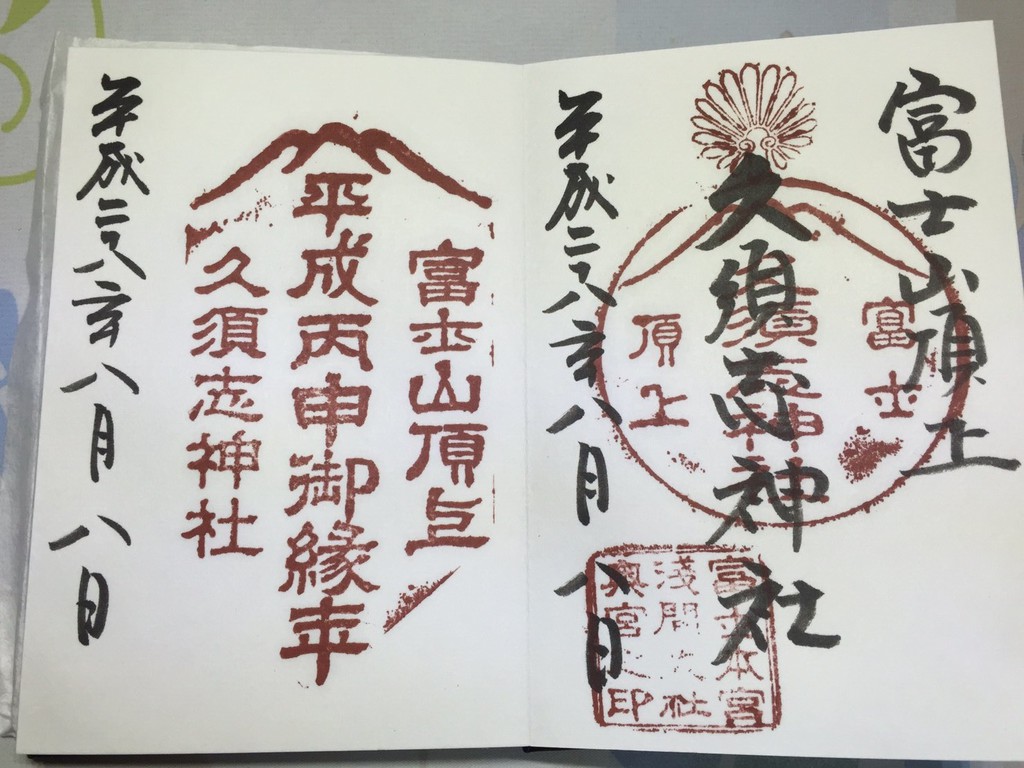 富士山頂上
久須志神社
平成二八年八月八日
富士
頂上
富士本宮
浅間大社
奥宮之印
富士山頂上
平成丙申御縁年
久須志神社
平成二八年八月八日